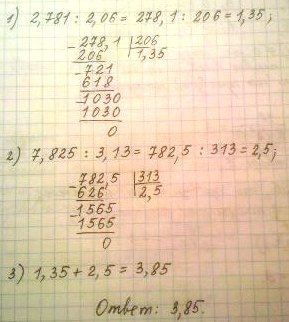 1) 2,781 : 2,06 = 278,1 : 206 = 1,35;
- 278,1 | 206
206 | 1,35
- 721
618
- 1030
1030
0
2) 7,825 : 3,13 = 782,5 : 313 = 2,5;
- 782,5 | 313
626 | 2,5
- 1565
1565
0
3) 1,35 + 2,5 = 3,85
Ответ: 3,85.